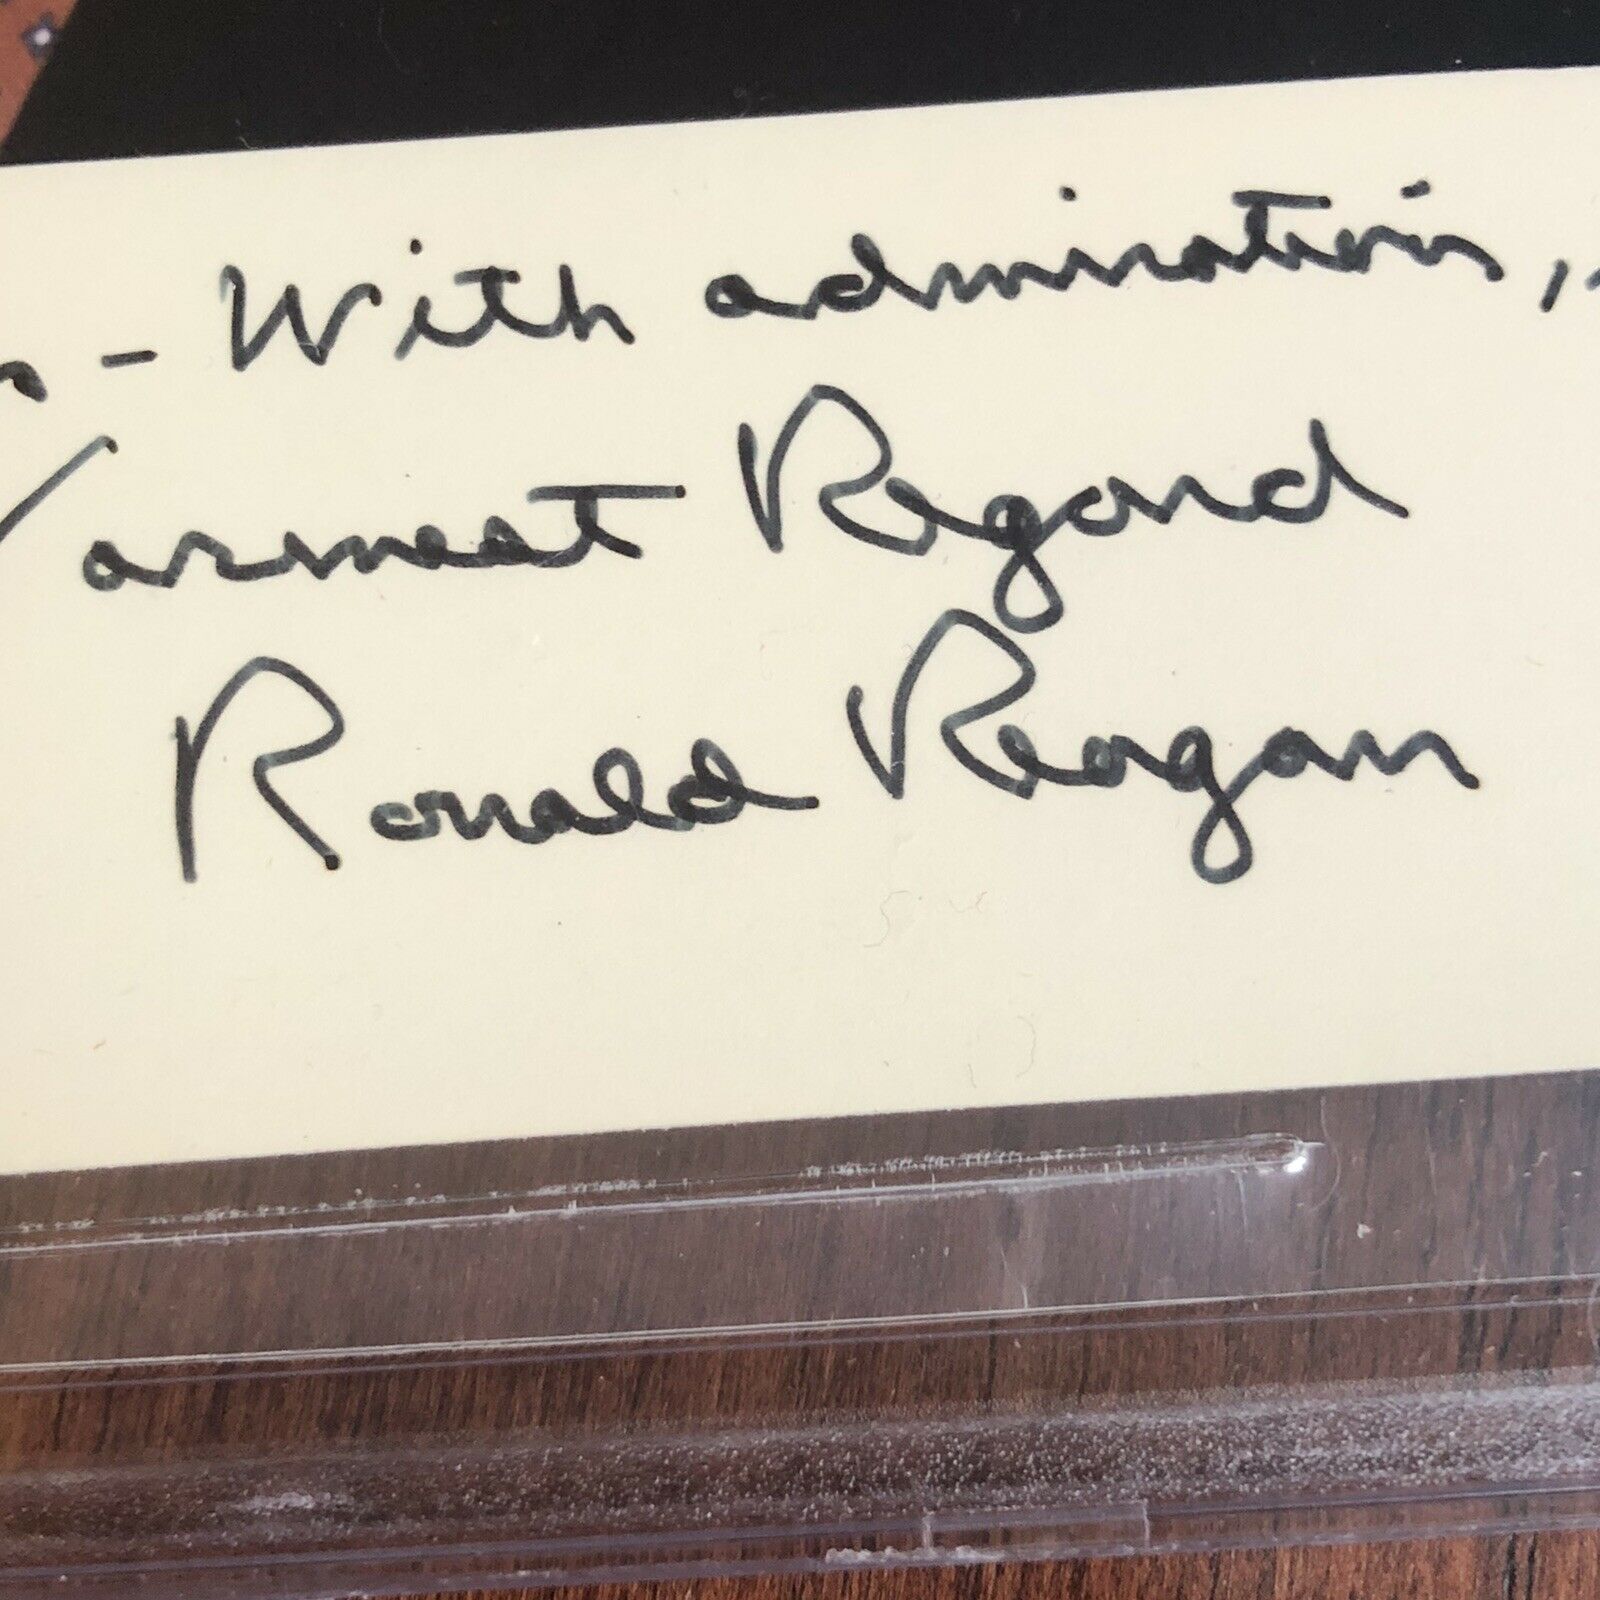 - With admiration,
Warmest Regard
Ronald Reagan